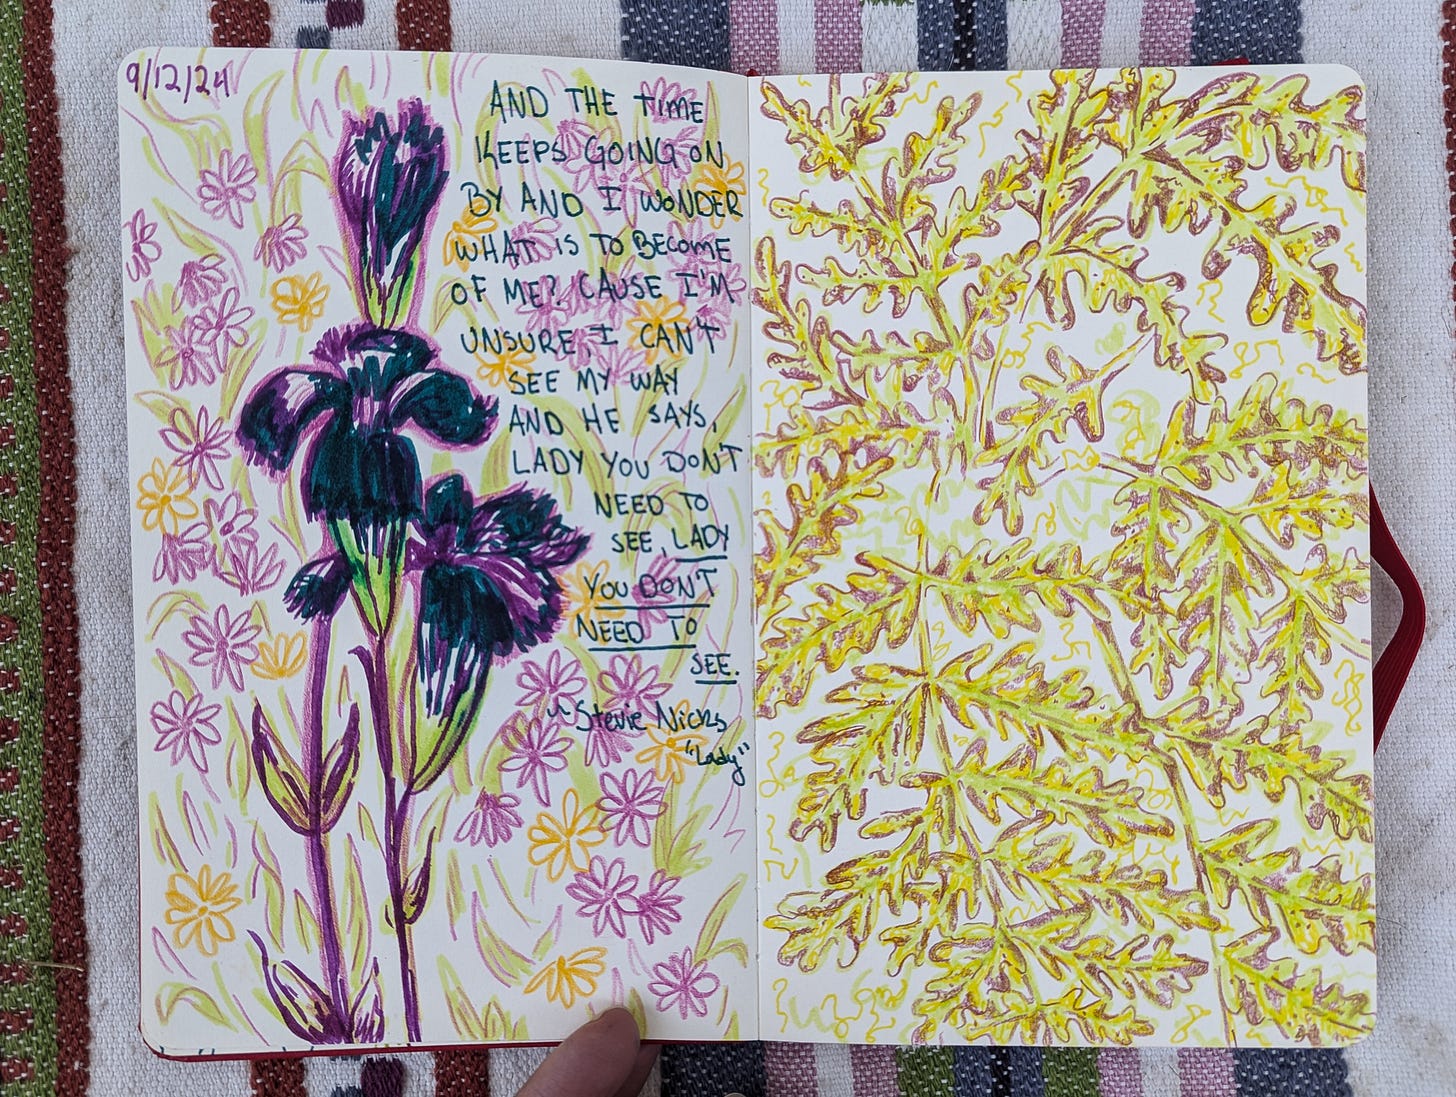 9/12/24
AND THE TIME
KEEPS GOING ON
BY AND I WONDER
WHAT IS TO BECOME
OF ME? CAUSE I'M
UNSURE, I CAN'T
SEE MY WAY
AND HE SAYS,
LADY YOU DON'T
NEED TO
SEE, LADY
YOU DON'T
NEED TO
SEE.
~Stevie Nicks
"Lady"